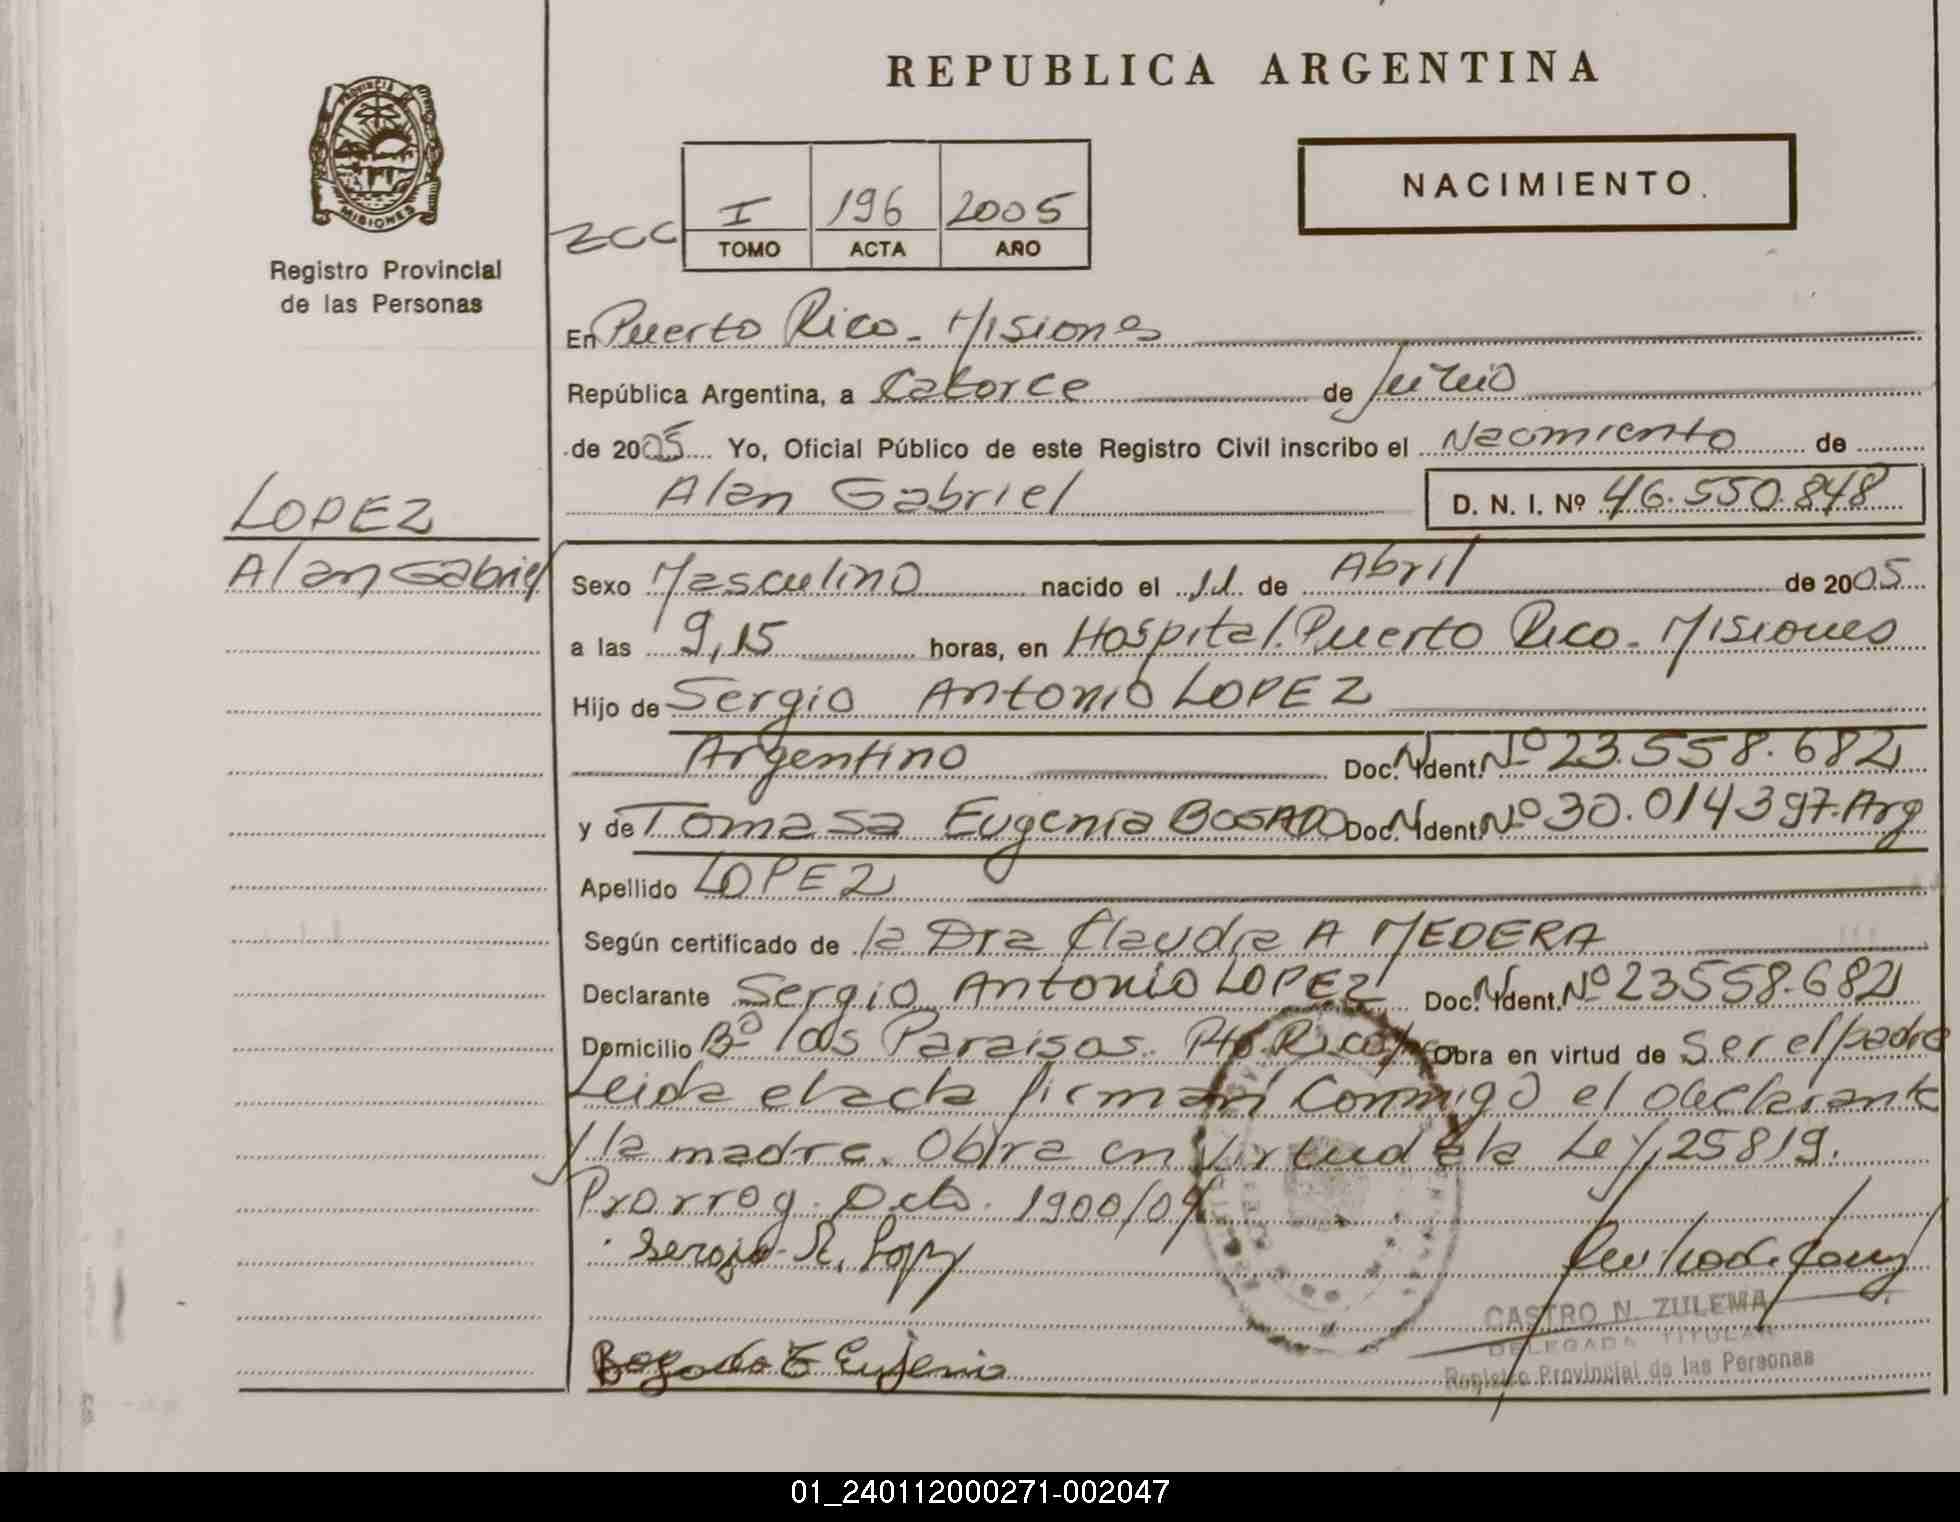 REPUBLICA ARGENTINA
PROVINCIA DE MISIONES
Registro Provincial
de las Personas
I 196 2005
TOMO ACTA AÑO
NACIMIENTO.
En Puerto Rico - Misiones
República Argentina, a Catorce de Junio
de 2005 Yo, Oficial Público de este Registro Civil inscribo el Nacimiento de
Alan Gabriel D. N. I. Nº 46.550.848
LOPEZ
Alan Gabriel
Sexo Masculino nacido el 11 de Abril de 2005
a las 9,15 horas, en Hospital. Puerto Rico - Misiones
Hijo de Sergio Antonio LOPEZ
Argentino Doc. N. Ident. Nº 23.558.682
y de Tomasa Eugenia Doc. N. Ident. Nº 30.014397. Arg
Apellido LOPEZ
Según certificado de la Dra Claudia A MEDERA
Declarante Sergio Antonio LOPEZ Doc. N. Ident. Nº 23558.682
Domicilio Bº los Paraisos. Pto. Rico Obra en virtud de ser el padre
Leida el acta firman Conmigo el declarante
y la madre. Obra en virtud de la Ley 25819.
Prorrog. Dcto. 1900/04
Sergio A. Lopez
CASTRO N. ZULEMA
DELEGADA TITULAR
Registro Provincial de las Personas
01_240112000271-002047